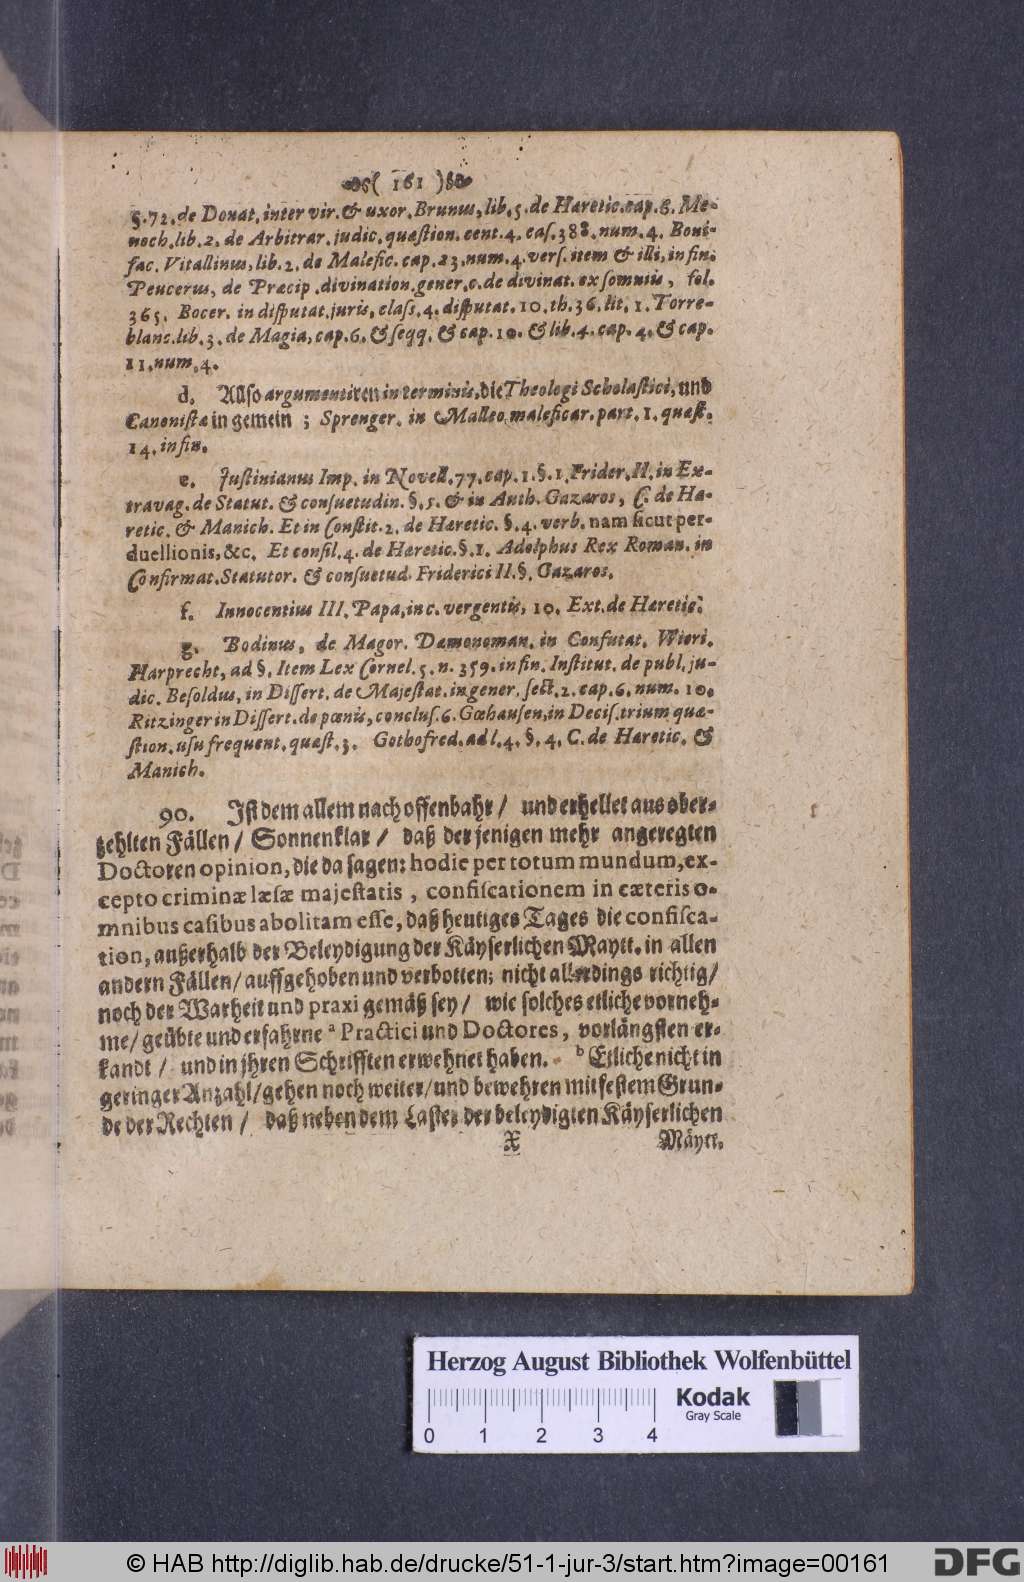 ( 161 )
§.72. de Donat. inter vir. & uxor. Brunus, lib. 5. de Haretic. cap. 8. Me-
noch. lib. 2. de Arbitrar. judic. quæstion. cent. 4. cas. 388. num. 4. Boni-
fac. Vitallinus, lib. 2. de Malefic. cap. 23. num. 4. vers. item & illi, in fin.
Peucerus, de Præcip. divination. gener. c. de divinat. ex somniis, fol.
365. Bocer. in disputat. juris, class. 4. disputat. 10. th. 36. lit. 1. Torre-
blanc. lib. 3. de Magia, cap. 6. & seqq. & cap. 10. & lib. 4. cap. 4. & cap.
11. num. 4.
d. Also argumentiren in terminis, die Theologi Scholastici, und
Canonistæ in gemein ; Sprenger. in Malleo maleficar. part. 1. quæst.
14. in fin.
e. Justinianus Imp. in Novell. 77. cap. 1. §. 1. Frider. II. in Ex-
travag. de Statut. & consuetudin. §. 5. & in Auth. Gazaros, C. de Hæ-
retic. & Manich. Et in Constit. 2. de Hæretic. §. 4. verb. nam sicut per-
duellionis, &c. Et consil. 4. de Hæretic. §. 1. Adolphus Rex Roman. in
Confirmat. Statutor. & consuetud. Friderici II. §. Gazaros.
f. Innocentius III. Papa, in c. vergentis, 10. Ext. de Hæretic.
g. Bodinus, de Magor. Dæmonoman. in Confutat. Wieri.
Harprecht, ad §. Item Lex Cornel. 5. n. 359. in fin. Institut. de publ. ju-
dic. Besoldus, in Dissert. de Majestat. in gener. sect. 2. cap. 6. num. 10.
Ritzinger in Dissert. de pœnis, conclus. 6. Gœhausen, in Decis. trium quæ-
stion. usu frequent. quæst. 3. Gothofred. ad l. 4. §. 4. C. de Hæretic. &
Manich.
90. Ist dem allem nach offenbahr / und erhellet aus ober-
zehlten Fällen / Sonnenklar / daß der jenigen mehr angeregten
Doctoren opinion, die da sagen: hodie per totum mundum, ex-
cepto criminæ læsæ majestatis , confiscationem in cæteris o-
mnibus casibus abolitam esse, daß heutiges Tages die confisca-
tion, außerhalb der Beleydigung der Käyserlichen Maytt. in allen
andern Fällen / auffgehoben und verbotten; nicht allerdings richtig /
noch der Warheit und praxi gemäß sey / wie solches etliche vorneh-
me / geübte und erfahrne a Practici und Doctores, vorlängsten er-
kandt / und in jhren Schrifften erwehnet haben. b Etliche nicht in
geringer Anzahl / gehen noch weiter / und bewehren mit festem Grun-
de der Rechten / daß neben dem Laster der beleydigten Käyserlichen
X Mäytt.
Herzog August Bibliothek Wolfenbüttel
Kodak
Gray Scale
0 1 2 3 4
© HAB http://diglib.hab.de/drucke/51-1-jur-3/start.htm?image=00161
DFG